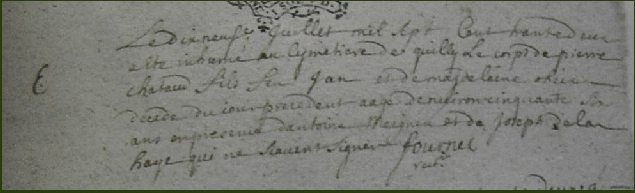 Le dixneuf Juillet mil sept Cent trante deux
a ete inhumé au Cymetiere de quilly Le corps de pierre
chataud fils feu Jan et de magdelaine
decedé du jour precedent aagé denviron cinquante six
ans en presence dantoine Meignen et de Joseph de la
haye qui ne scavent signer fournel